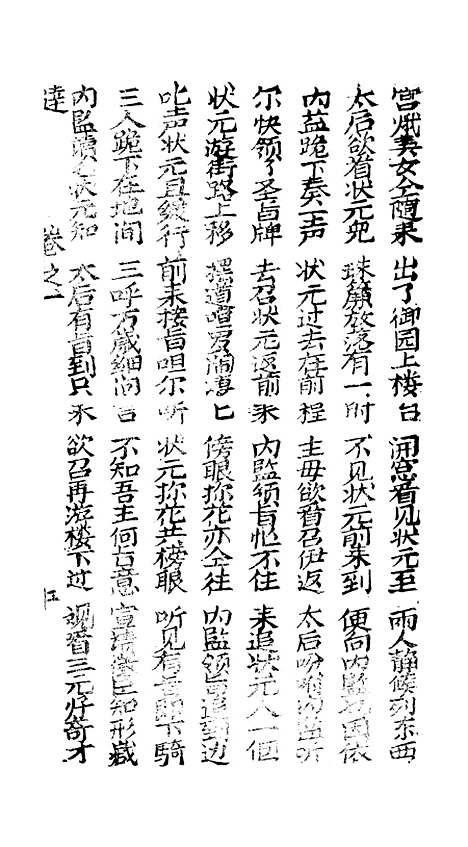 宫娥美女仝随来 出了御园上楼台 開窓看见状元至 兩人静候列东西
太后欲看状元児 珠簾放落有一时 不见状元前来到 便问内監因依
内监跪下奏一声 状元过去在前程 主毋欲看召伊返 太后吩咐内監听
尔快领了圣旨牌 去召状元返前来 内監领旨忙不住 来追状元人一個
状元游街路上移 摆道喧罗闹淒匕 傍眼探花亦仝往 内監领旨追到边
叱声状元且缓行 前来接旨呾尔听 状元探花共榜眼 听见有旨即下騎
三人跪下在地间 三呼万歲細问言 不知吾主何旨意 宣請微臣知形藏
内監讀旨状元知 太后有旨到只来 欲召再游楼下过 观看三元好奇才
逵 卷之一